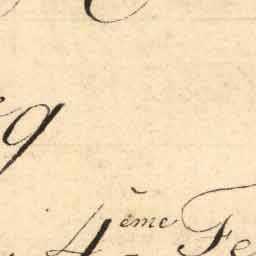 9
4ème Fe